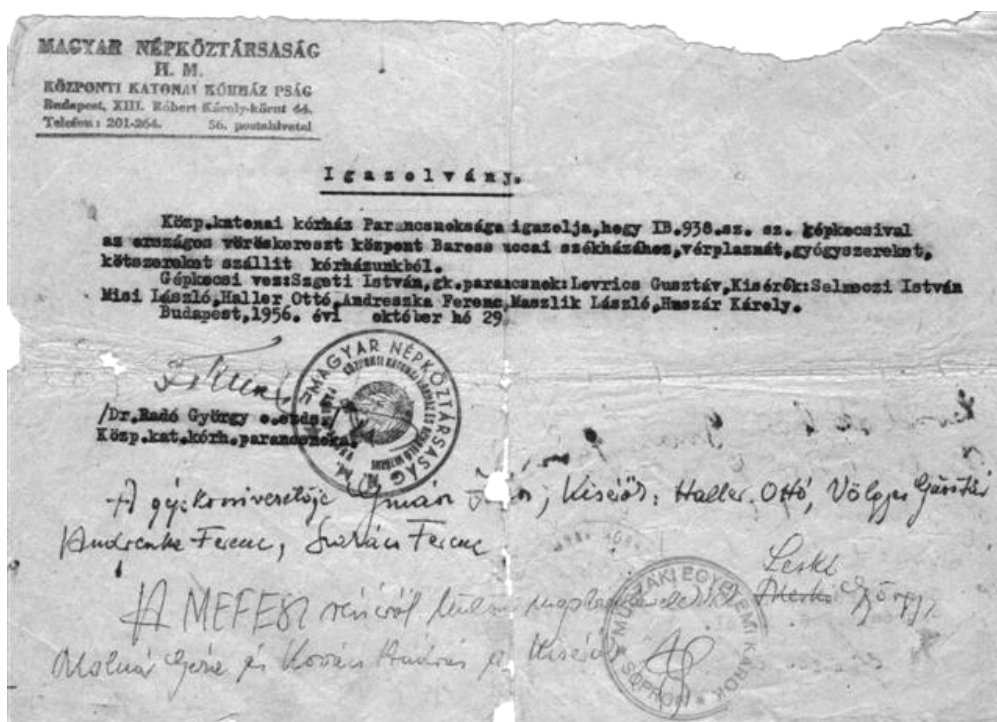 MAGYAR NÉPKÖZTÁRSASÁG
H. M.
KÖZPONTI KATONAI KÓRHÁZ PSÁG
Budapest, XIII. Róbert Károly-körut 44.
Telefon: 201-264. 56. postahivatal
Igazolvány.
Közp.katonai kórház Parancsnoksága igazolja,hogy IB.938.sz. sz. gépkocsival
az országos vöröskereszt központ Baross uccai székházához,vérplazmát,gyógyszereket,
kötszereket szállit kórházunkból.
Gépkocsi vez:Szgeti István,gk.parancsnok:Lovrics Gusztáv,Kisérők:Selmeczi István
Misi László,Haller Ottó,Andreszka Ferenc,Maszlik László,Huszár Károly.
Budapest,1956. évi október hó 29
/Dr.Radó György o.ezds./
Közp.kat.kórh.parancsnoka.
MAGYAR NÉPKÖZTÁRSASÁG
A gépkocsivezetője Kisérők: Haller Ottó, Völgyes Gusztáv
Ferenc, Ferenc
Leskó
A MEFESZ részéről György,
Molnár Géza és Kovács András Kisérők
MŰSZAKI EGYETEMI KAROK SOPRON